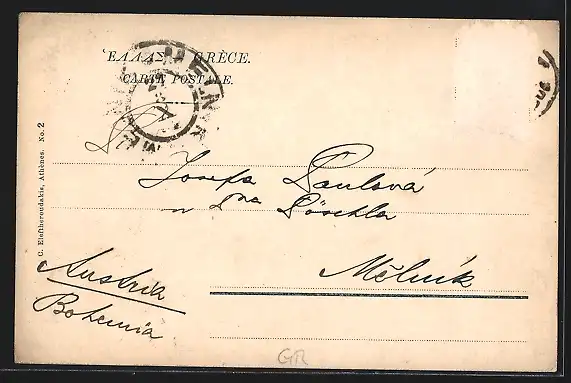 ἙΛΛΑΣ — GRÈCE.
CARTE POSTALE.
Josefa Paulová
u Dra Pöschla
Mělník
Austria
Bohemia
C. Eleftheroudakis, Athènes. No. 2
GR